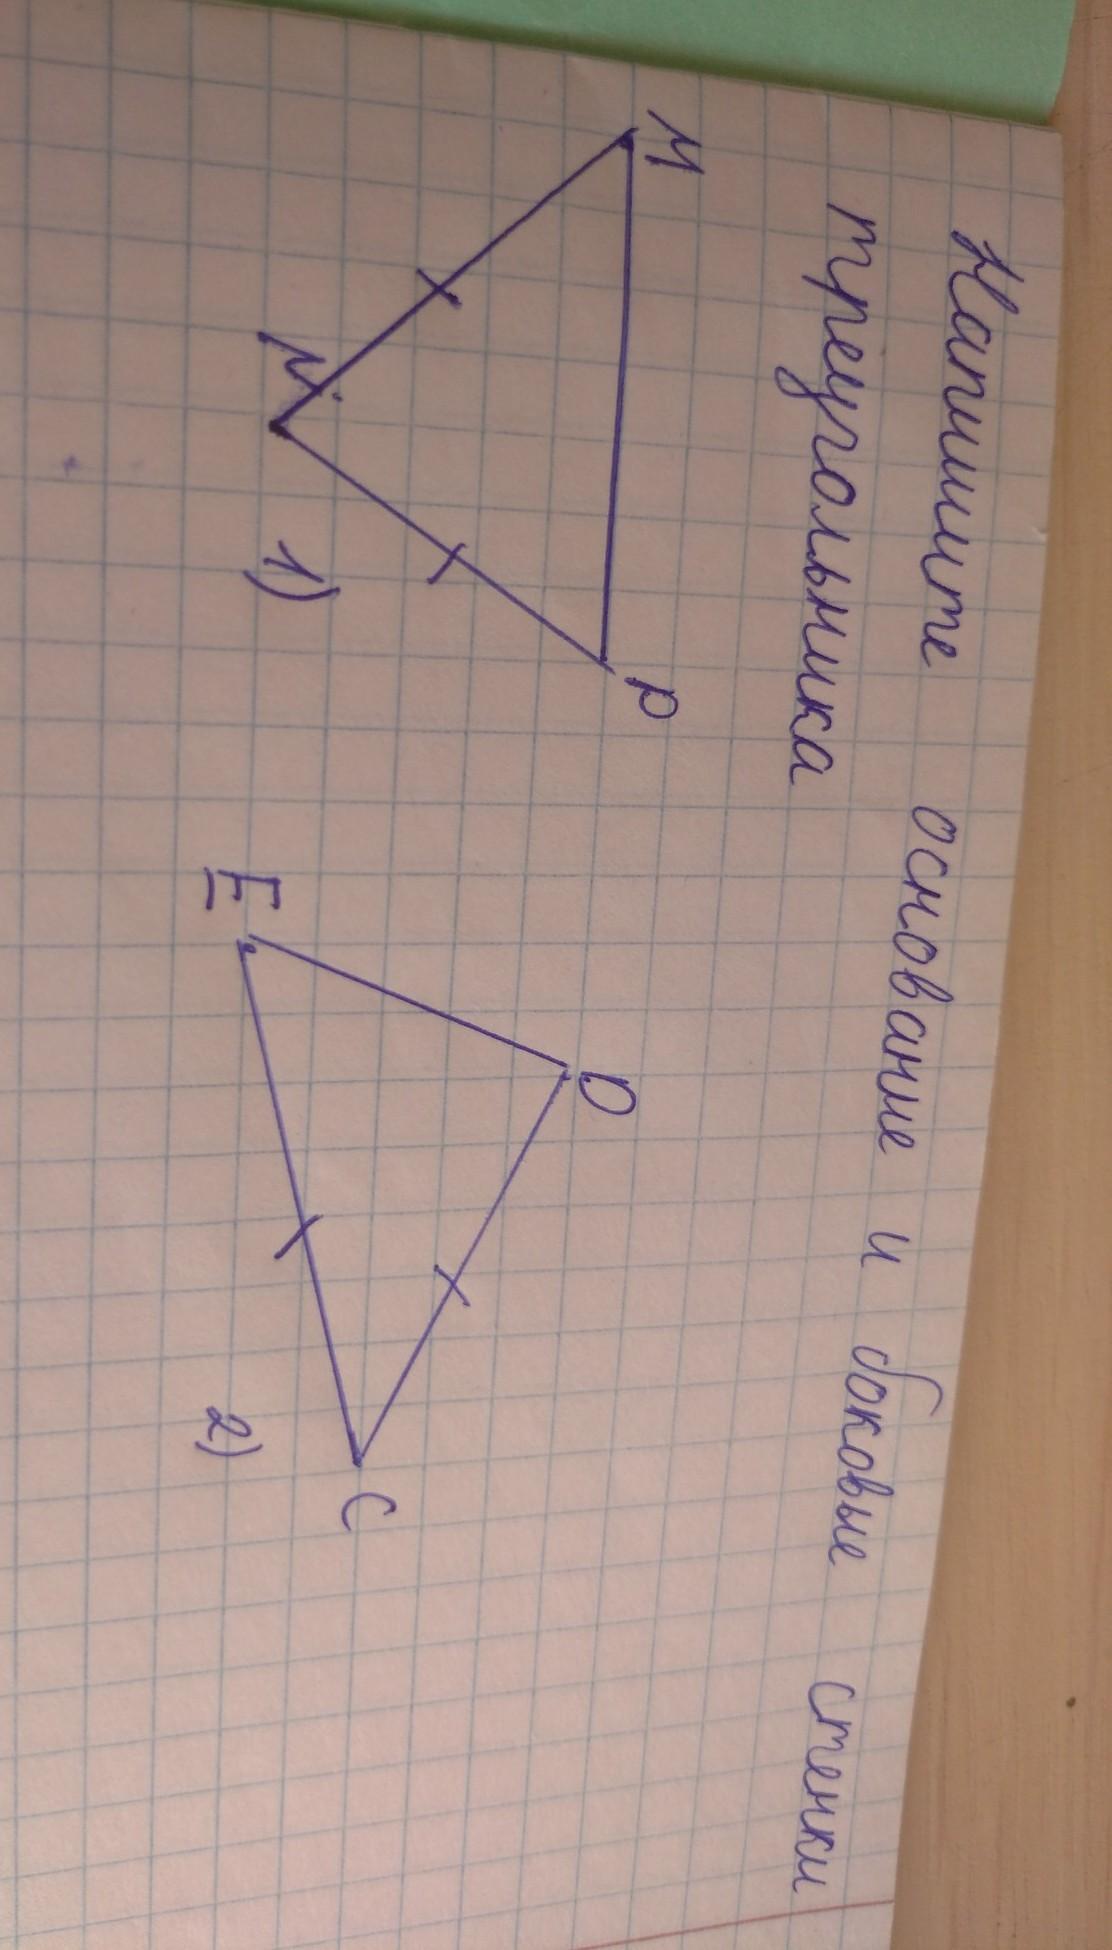 Напишите основание и боковые стенки
треугольника
M
P
N
1)
D
E
C
2)